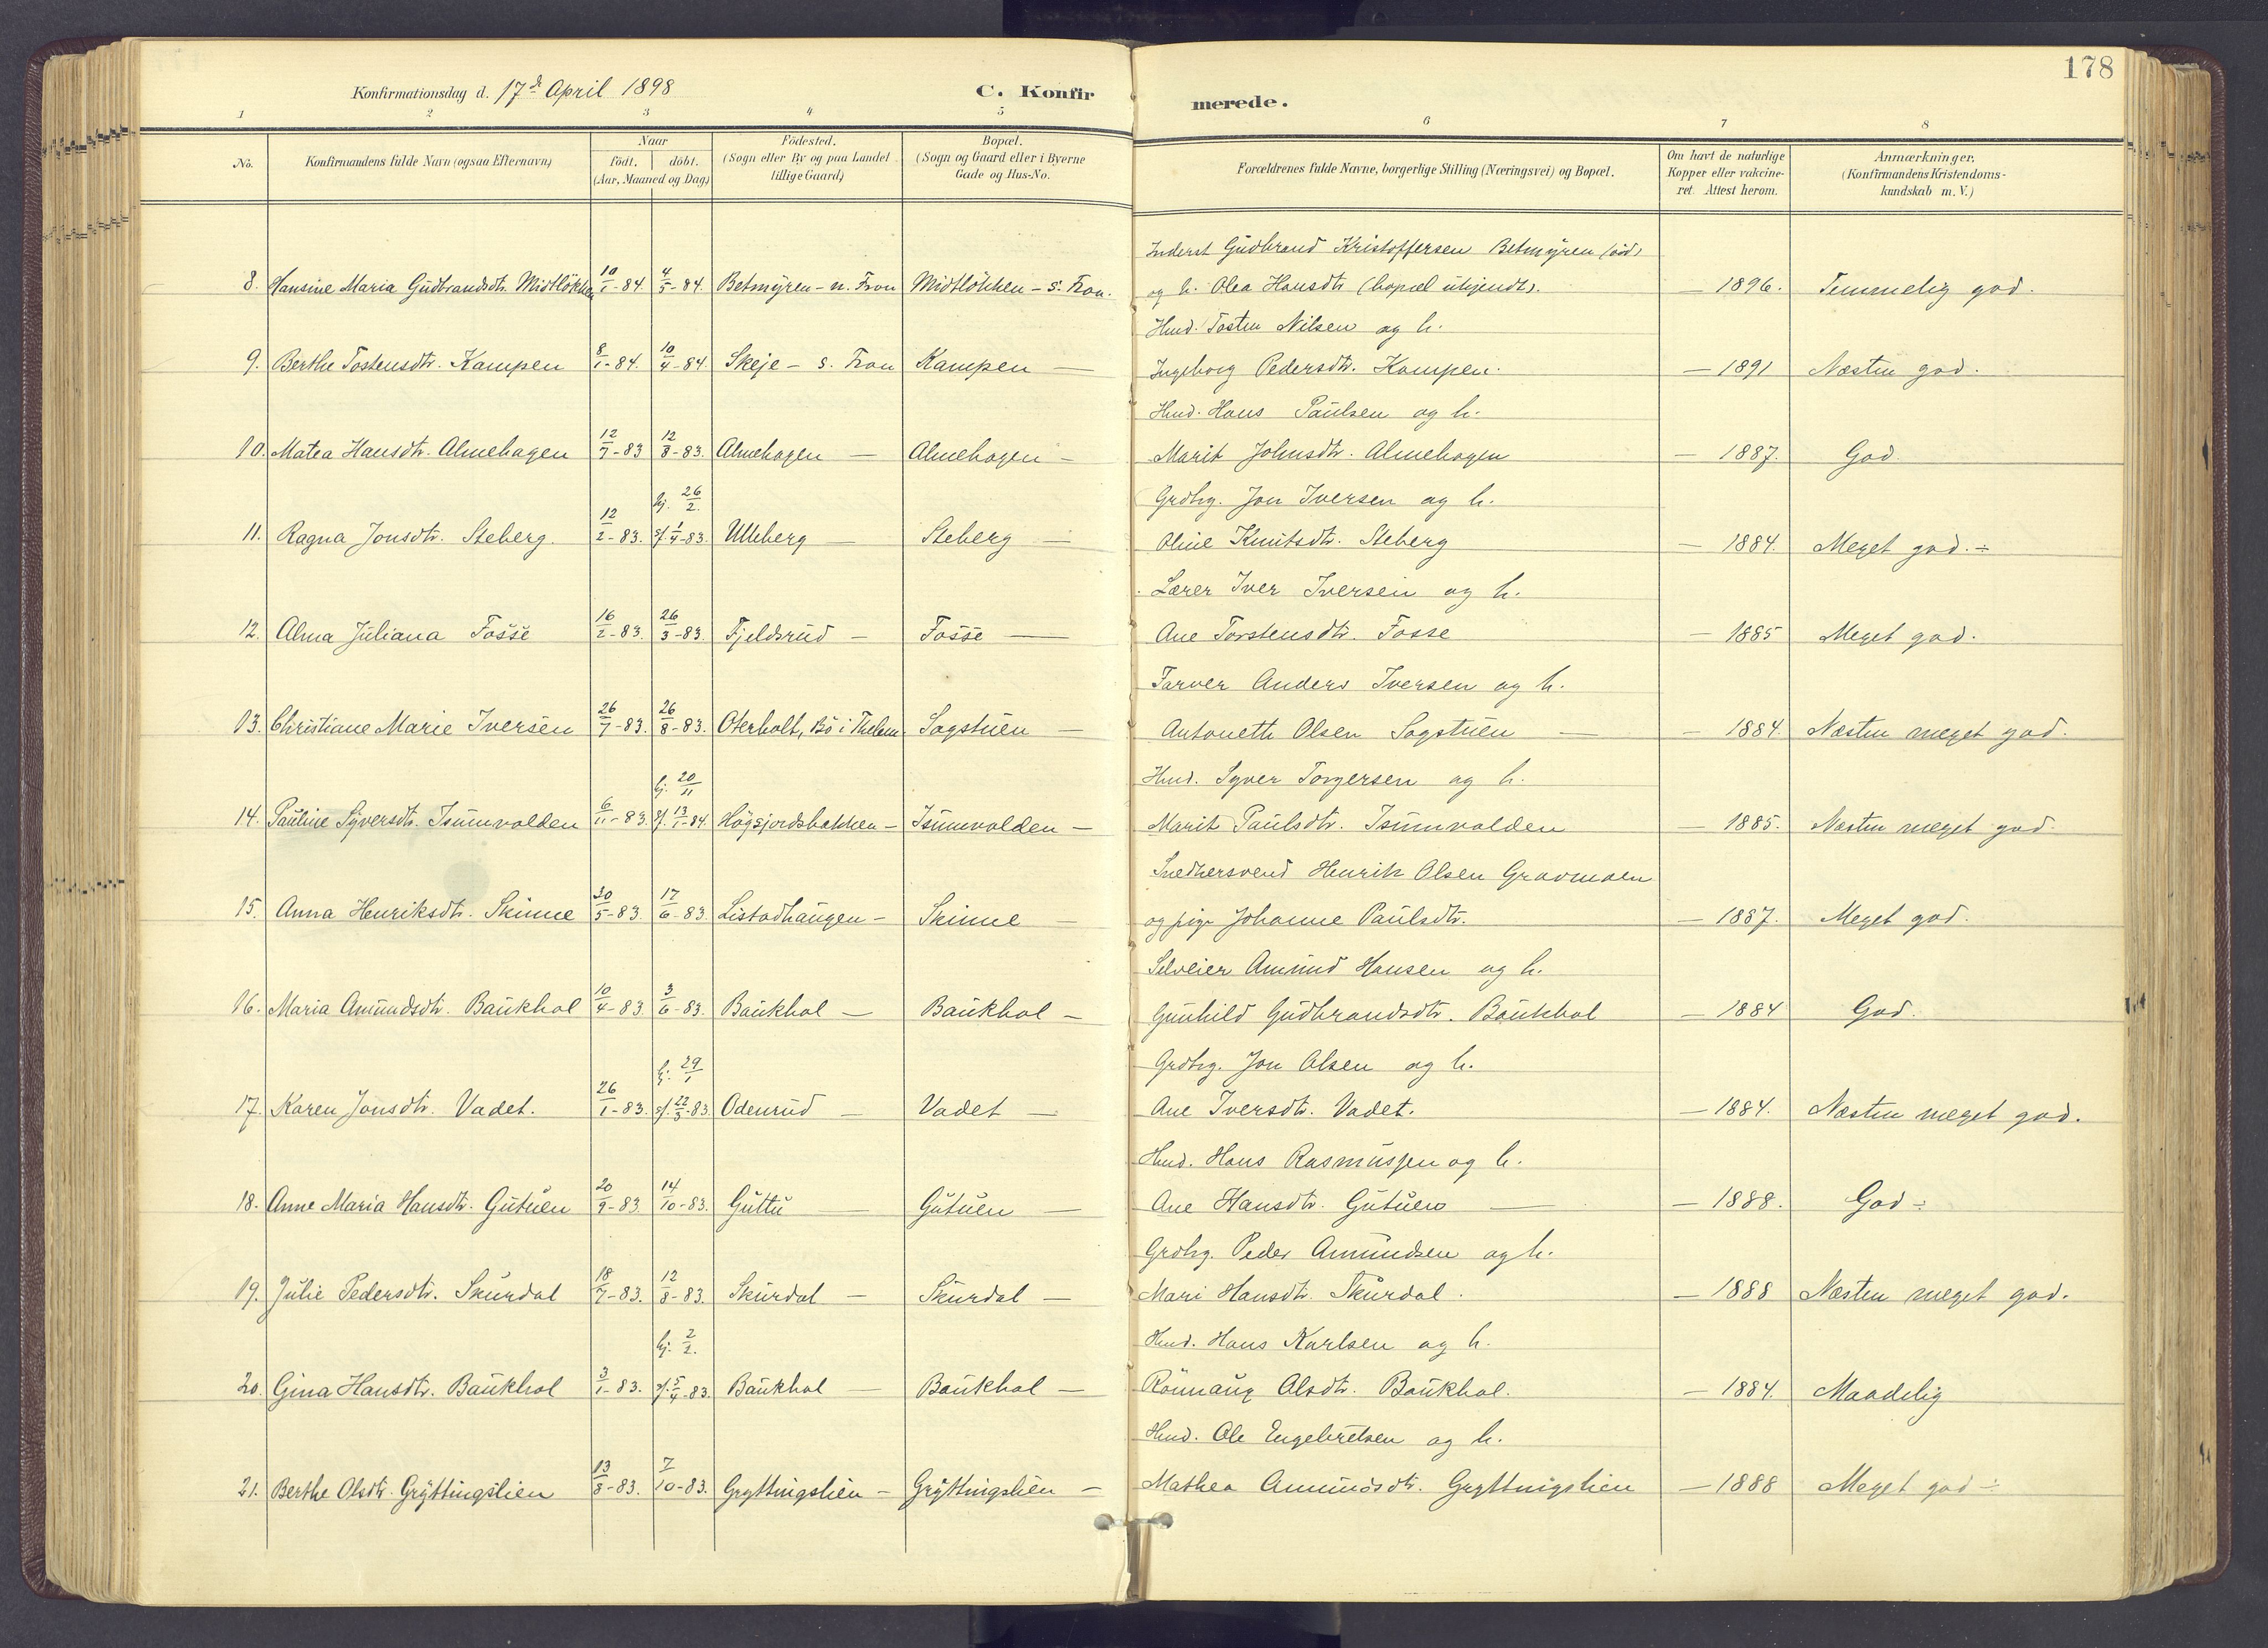 178
Konfirmationsdag d. 17de April 1898 C. Konfirmerede.
1 2 3 4 5 6 7 8
No. Konfirmandens fulde Navn (ogsaa Efternavn) Naar født. døbt. (Aar, Maaned og Dag) Fødested. (Sogn eller By og paa Landet tillige Gaard) Bopæl. (Sogn og Gaard eller i Byerne Gade og Hus-No. Forældrenes fulde Navne, borgerlige Stilling (Næringsvei) og Bopæl. Om havt de naturlige Kopper eller vakcineret. Attest herom. Anmærkninger. (Konfirmandens Kristendomskundskab m. V.)
Inderst Gudbrand Kristoffersen Betmyren (död)
8. Hansine Maria Gudbrandsdtr. Midtlökken 10/1-84. 4/5-84. Betmyren - n. Fron Midtlökken - s. Fron. og h. Olea Hansdtr (bopæl ubjendt). — 1896. Temmelig god.
Hmd. Tosten Nilsen og h.
9. Berthe Tostensdtr. Kampen 8/1-84. 10/4-84. Skeje - s. Fron Kampen — Ingeborg Pedersdtr. Kampen. — 1891 Næsten god.
Hmd. Hans Paulsen og h.
10. Matea Hansdtr. Almehagen 12/7-83 12/8-83. Almehagen — Almehagen — Marit Johnsdtr. Almehagen — 1887. God
hj. 26/2. Grdbrg. Jon Iversen og h.
11. Ragna Jonsdtr. Steberg. 12/2-83. 1/4-83. Ulleberg — Steberg — Oline Knutsdtr. Steberg — 1884. Meget god. ÷
Lærer Iver Iversen og h.
12. Alma Juliana Fosse 16/2-83. 26/3-83. Fjeldsrud — Fosse — Ane Torstensdtr. Fosse — 1885 Meget god.
Farver Anders Iversen og h.
13. Christiane Marie Iversen 26/7-83. 26/8-83. Oterholt, Bö i Thelem. Sagstuen — Antonette Olsen Sagstuen — — 1884. Næsten meget god.
hj. 20/11 Hmd. Syver Torgersen og h.
14. Pauline Syversdtr. Isumvolden 6/11-83. 13/1-84. Högsjordsbakken — Isumvolden — Marit Paulsdtr. Isumvolden — 1885. Næsten meget god.
Snedkersvend Henrik Olsen Gravmoen
15. Anna Henriksdtr. Skinne 30/5-83. 17/6-83. Listadhaugen — Skinne — og pige Johanne Paulsdtr. — 1887. Meget god.
Selveier Amund Hansen og h.
16. Maria Amundsdtr. Baukhol 10/4-83 3/6-83. Baukhol — Baukhol — Gunhild Gudbrandsdtr. Baukhol — 1884 God.
hj. 29/1 Grdbrg. Jon Olsen og h.
17. Karen Jonsdtr. Vadet. 26/1-83. 22/3-83. Odenrud — Vadet — Ane Iversdtr. Vadet. — 1884. Næsten meget god.
Hmd. Hans Rasmussen og h.
18. Anne Maria Hansdtr. Gutuen 20/9-83. 14/10-83. Guttu — Gutuen — Ane Hansdtr. Gutuen — — 1888. God ÷
Grdbrg. Peder Amundsen og h.
19. Julie Pedersdtr. Skurdal 18/7-83. 12/8-83. Skurdal — Skurdal — Mari Hansdtr. Skurdal. — 1888 Næsten meget god.
hj. 2/2. Hmd. Hans Karlsen og h.
20. Gina Hansdtr. Baukhol 3/1-83. 5/4-83. Baukhol — Baukhol — Rönnaug Olsdtr. Baukhol. — 1884. Maadelig
Hmd. Ole Engebretsen og h.
21. Berthe Olsdtr. Gryttingslien 13/8-83. 7/10-83. Gryttingslien — Gryttingslien — Mathea Amundsdtr. Gryttingslien — 1888 Meget god ÷